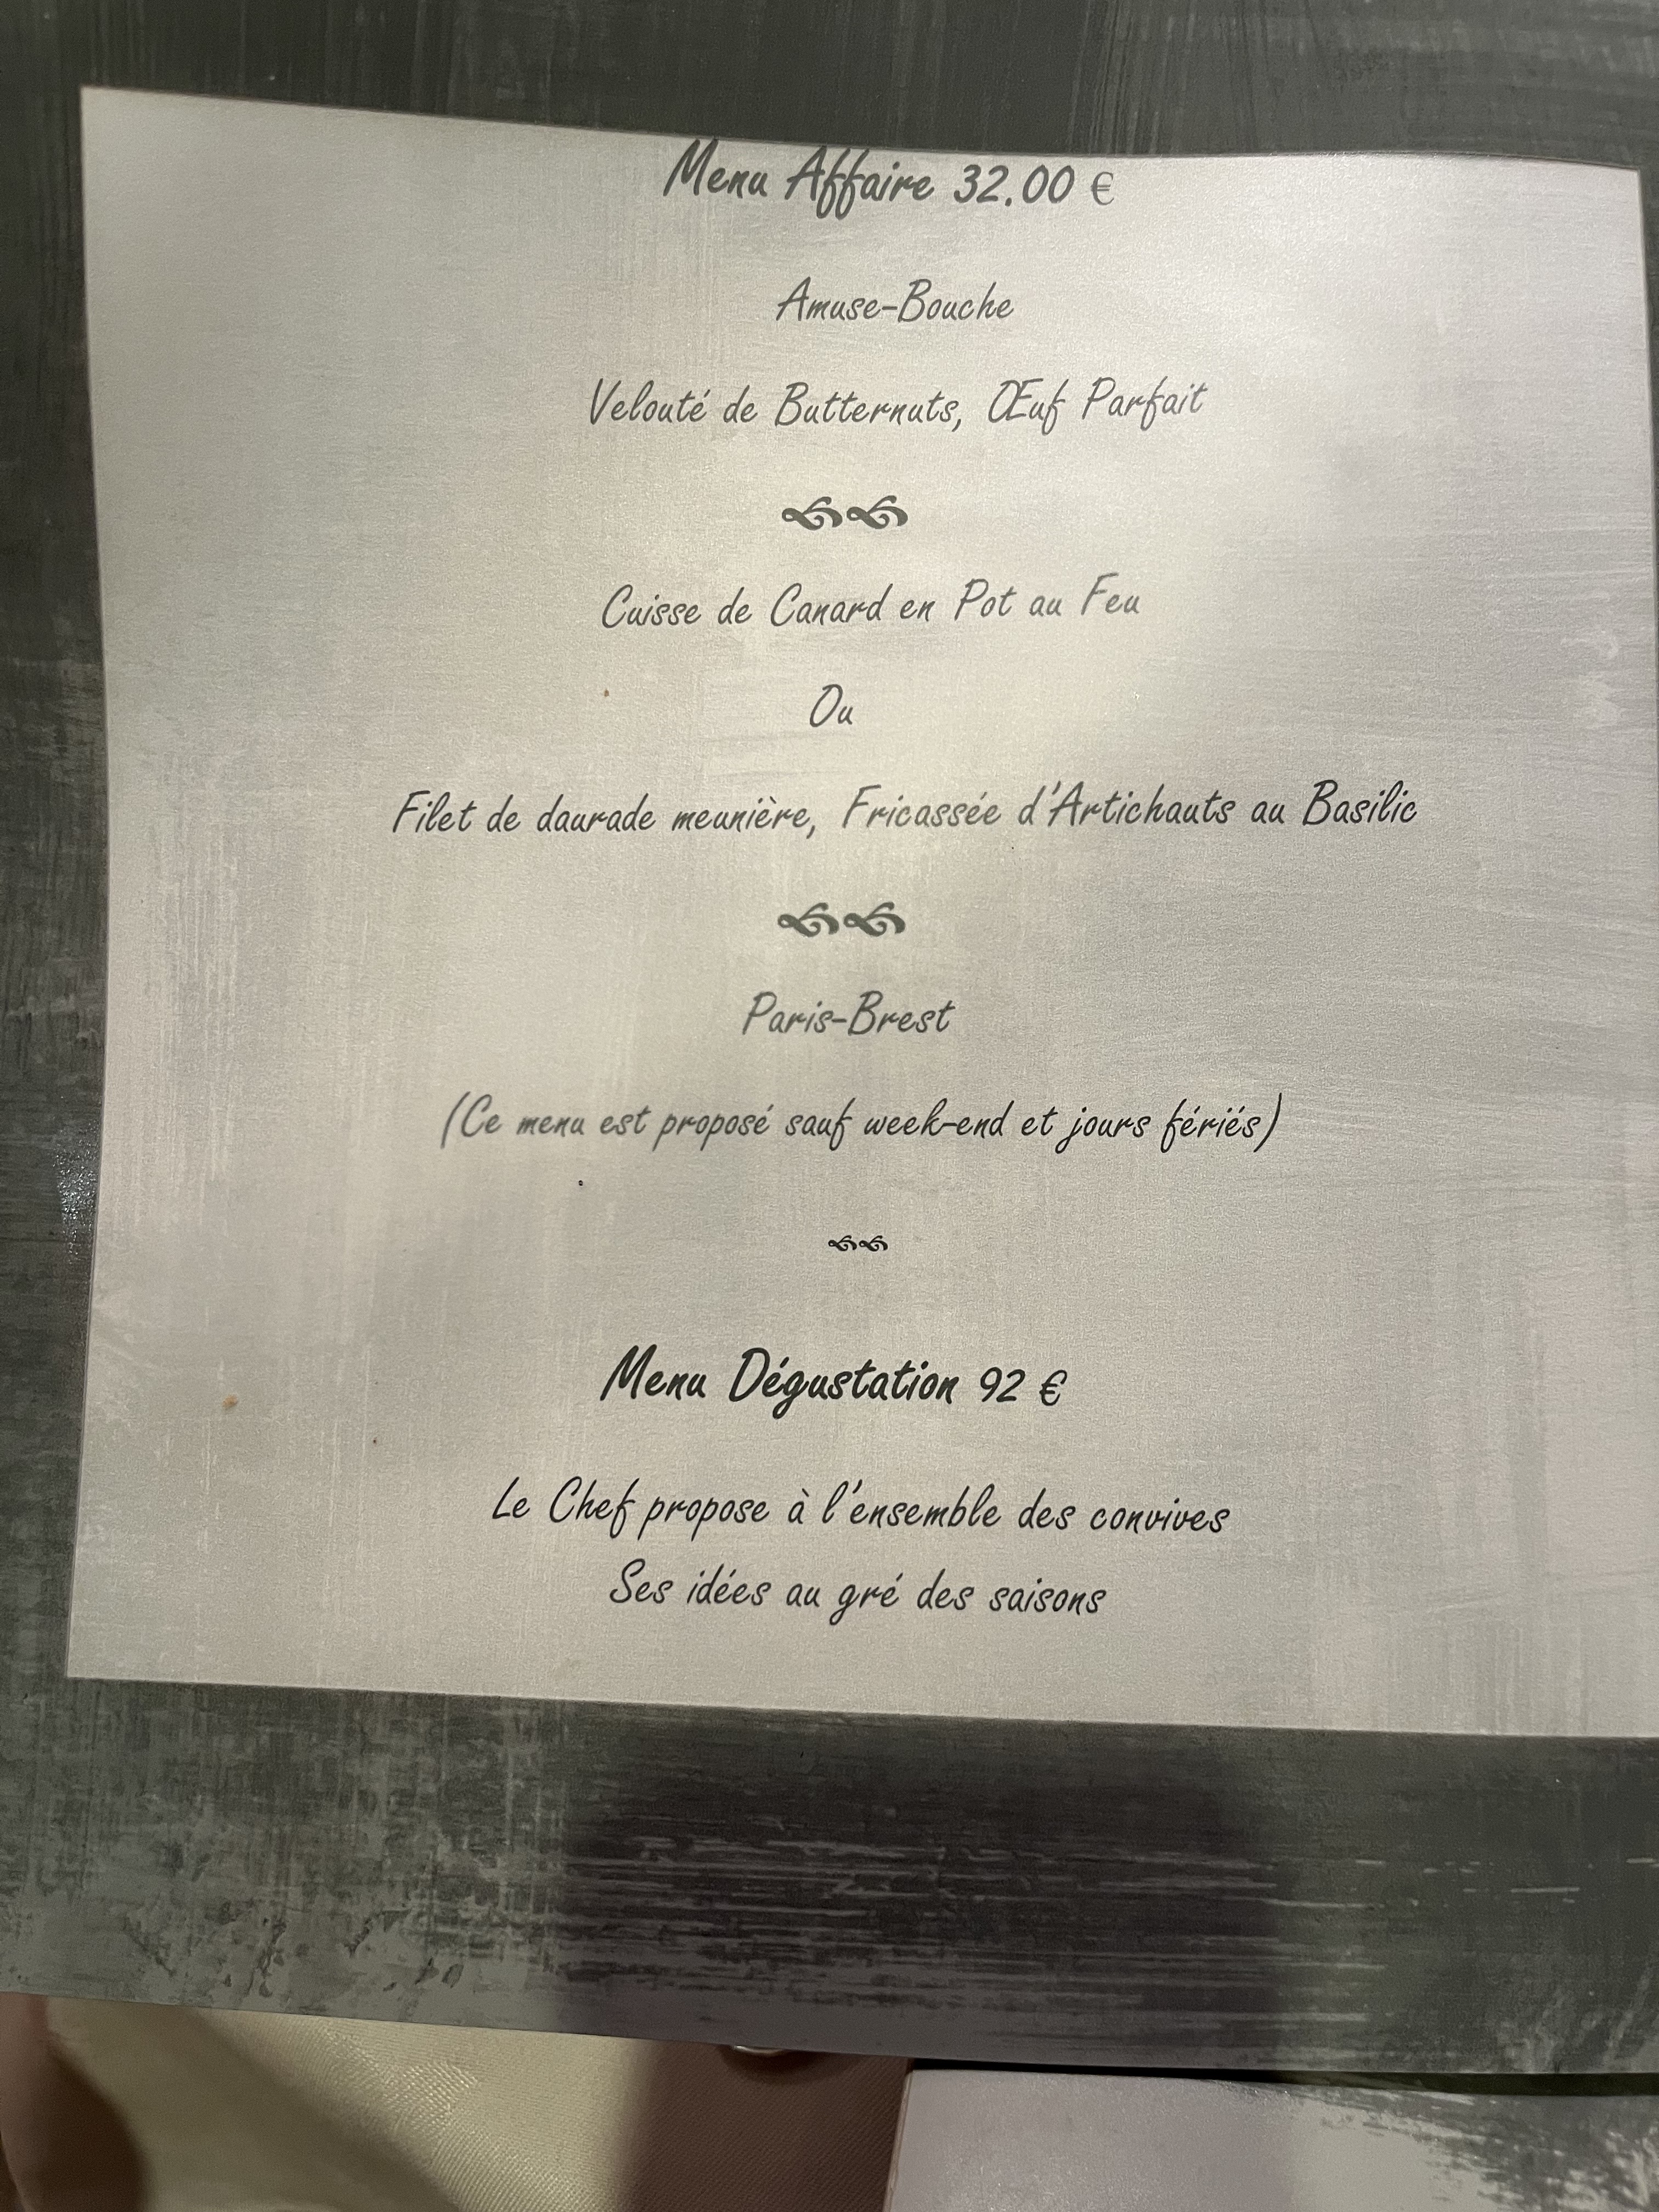 Menu Affaire 32.00 €
Amuse-Bouche
Velouté de Butternuts, Œuf Parfait
Cuisse de Canard en Pot au Feu
Ou
Filet de daurade meunière, Fricassée d'Artichauts au Basilic
Paris-Brest
(Ce menu est proposé sauf week-end et jours fériés)
Menu Dégustation 92 €
Le Chef propose à l'ensemble des convives
Ses idées au gré des saisons